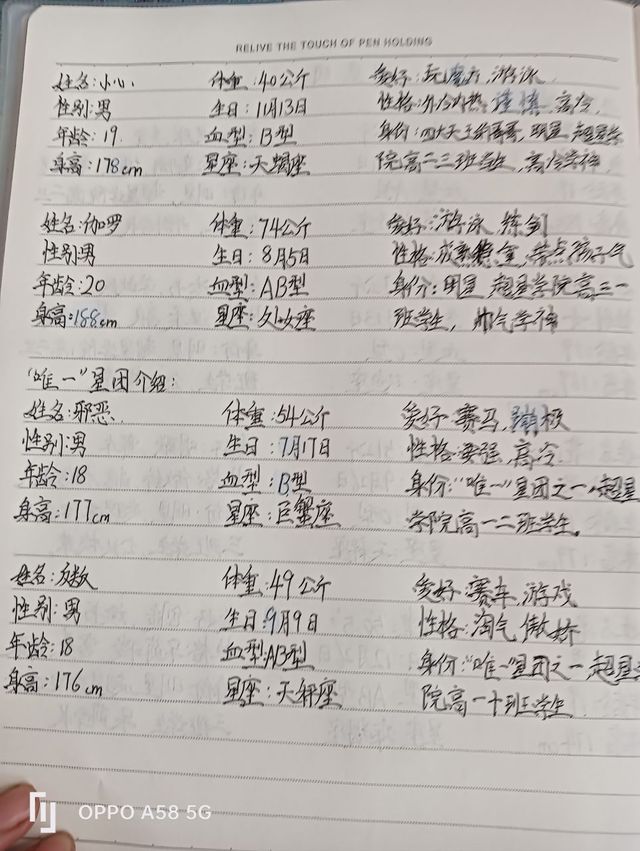 RELIVE THE TOUCH OF PEN HOLDING
姓名:小心 体重:40公斤 爱好:玩魔方,游泳
性别:男 生日:11月13日 性格:外冷内热 谨慎 高冷
年龄:19 血型:B型 身份:四大天王 明星 超星学
身高:178cm 星座:天蝎座 院高二三班学生,高冷学神
姓名:伽罗 体重:74公斤 爱好:游泳 练剑
性别男 生日:8月5日 性格:成熟稳重 带点孩子气
年龄:20 血型:AB型 身份:明星 超星学院高三一
身高:188cm 星座:处女座 班学生,帅气学神
“唯一”星团介绍:
姓名:邪恶 体重:54公斤 爱好:赛马,蹦极
性别:男 生日:7月17日 性格:要强 高冷
年龄:18 血型:B型 身份:“唯一”星团之一,超星
身高:177cm 星座:巨蟹座 学院高一二班学生
姓名:多数 体重:49公斤 爱好:赛车,游戏
性别:男 生日:9月9日 性格:淘气 傲娇
年龄:18 血型:AB型 身份:“唯一”星团之一,超星学
身高:176cm 星座:天秤座 院高一十班学生
OPPO A58 5G